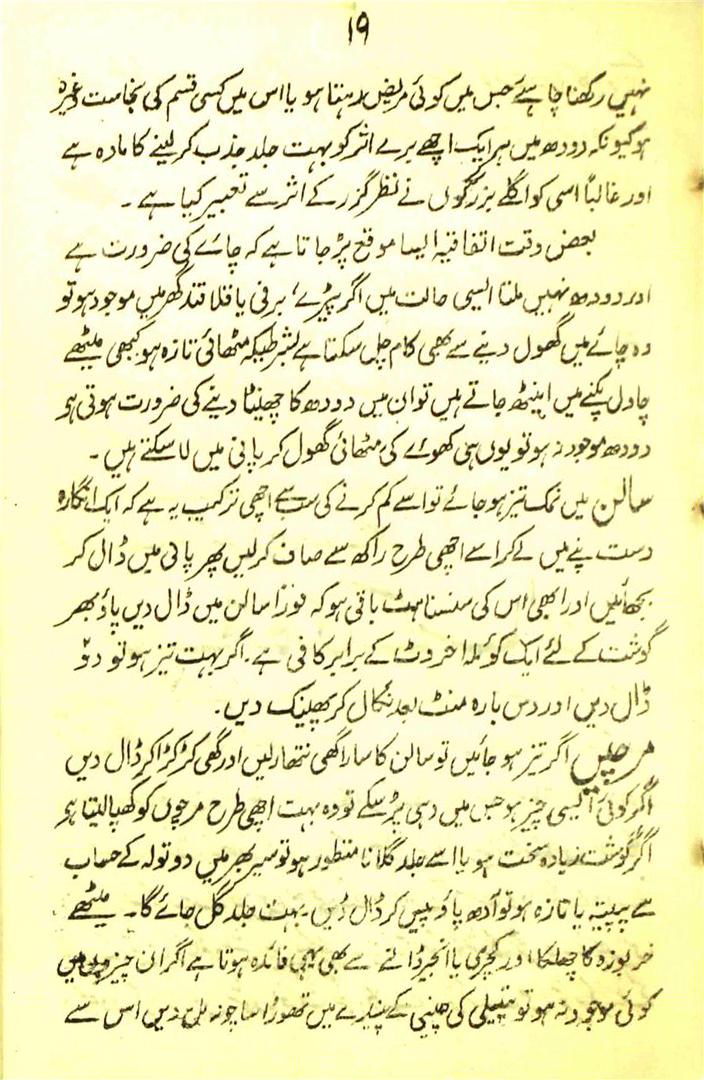 ۱۹
نہیں رکھنا چاہئے جس میں کوئی مریض رہتا ہو یا اس میں کسی قسم کی نجاست وغیرہ
ہو کیونکہ دودھ میں ہر ایک اچھے برے اثر کو بہت جلد جذب کر لینے کا مادہ ہے
اور غالباً اسی کو اگلے بزرگوں نے نظر گزر کے اثر سے تعبیر کیا ہے ۔
بعض وقت اتفاقیہ ایسا موقع پڑ جاتا ہے کہ چائے کی ضرورت ہے
اور دودھ نہیں ملتا ایسی حالت میں اگر پیڑے، برفی یا قلاقند گھر میں موجود ہو تو
وہ چائے میں گھول دینے سے بھی کام چل سکتا ہے بشرطیکہ مٹھائی تازہ ہو کبھی میٹھے
چاول پکنے میں اینٹھ جاتے ہیں تو ان میں دودھ کا چھینٹا دینے کی ضرورت ہوتی ہو
دودھ موجود نہ ہو تو یوں ہی کھوئے کی مٹھائی گھول کر پانی میں لا سکتے ہیں ۔
سالن میں نمک تیز ہو جائے تو اسے کم کرنے کی سب سے اچھی ترکیب یہ ہے کہ ایک انگارہ
دست پنے میں لے کر اسے اچھی طرح راکھ سے صاف کر لیں پھر پانی میں ڈال کر
بجھائیں اور ابھی اس کی سنسناہٹ باقی ہو کہ فوراً سالن میں ڈال دیں پاؤ بھر
گوشت کے لئے ایک کوئلہ اخروٹ کے برابر کافی ہے ۔ اگر بہت تیز ہو تو دو
ڈال دیں اور دس بارہ منٹ بعد نکال کر پھینک دیں ۔
مرچیں اگر تیز ہو جائیں تو سالن کا سارا گھی نتھار لیں اور گھی کڑکڑا کر ڈال دیں
اگر کوئی ایسی چیز ہو جس میں دہی پڑ سکے تو وہ بہت اچھی طرح مرچوں کو کھپا لیتا ہو
اگر گوشت زیادہ سخت ہو یا اسے جلد گلانا منظور ہو تو سیر بھر میں دو تولہ کے حساب
سے پپیتہ یا تازہ ہو تو آدھ پاؤ پیس کر ڈال دیں ۔ بہت جلد گل جائے گا ۔ میٹھے
خربوزہ کا چھلکا اور کچری یا انجیر ڈالنے سے بھی یہی فائدہ ہوتا ہے اگر ان چیزوں میں
کوئی موجود نہ ہو تو پتیلی کی چپنی کے پیندے میں تھوڑا سا چونہ مل دیں اس سے